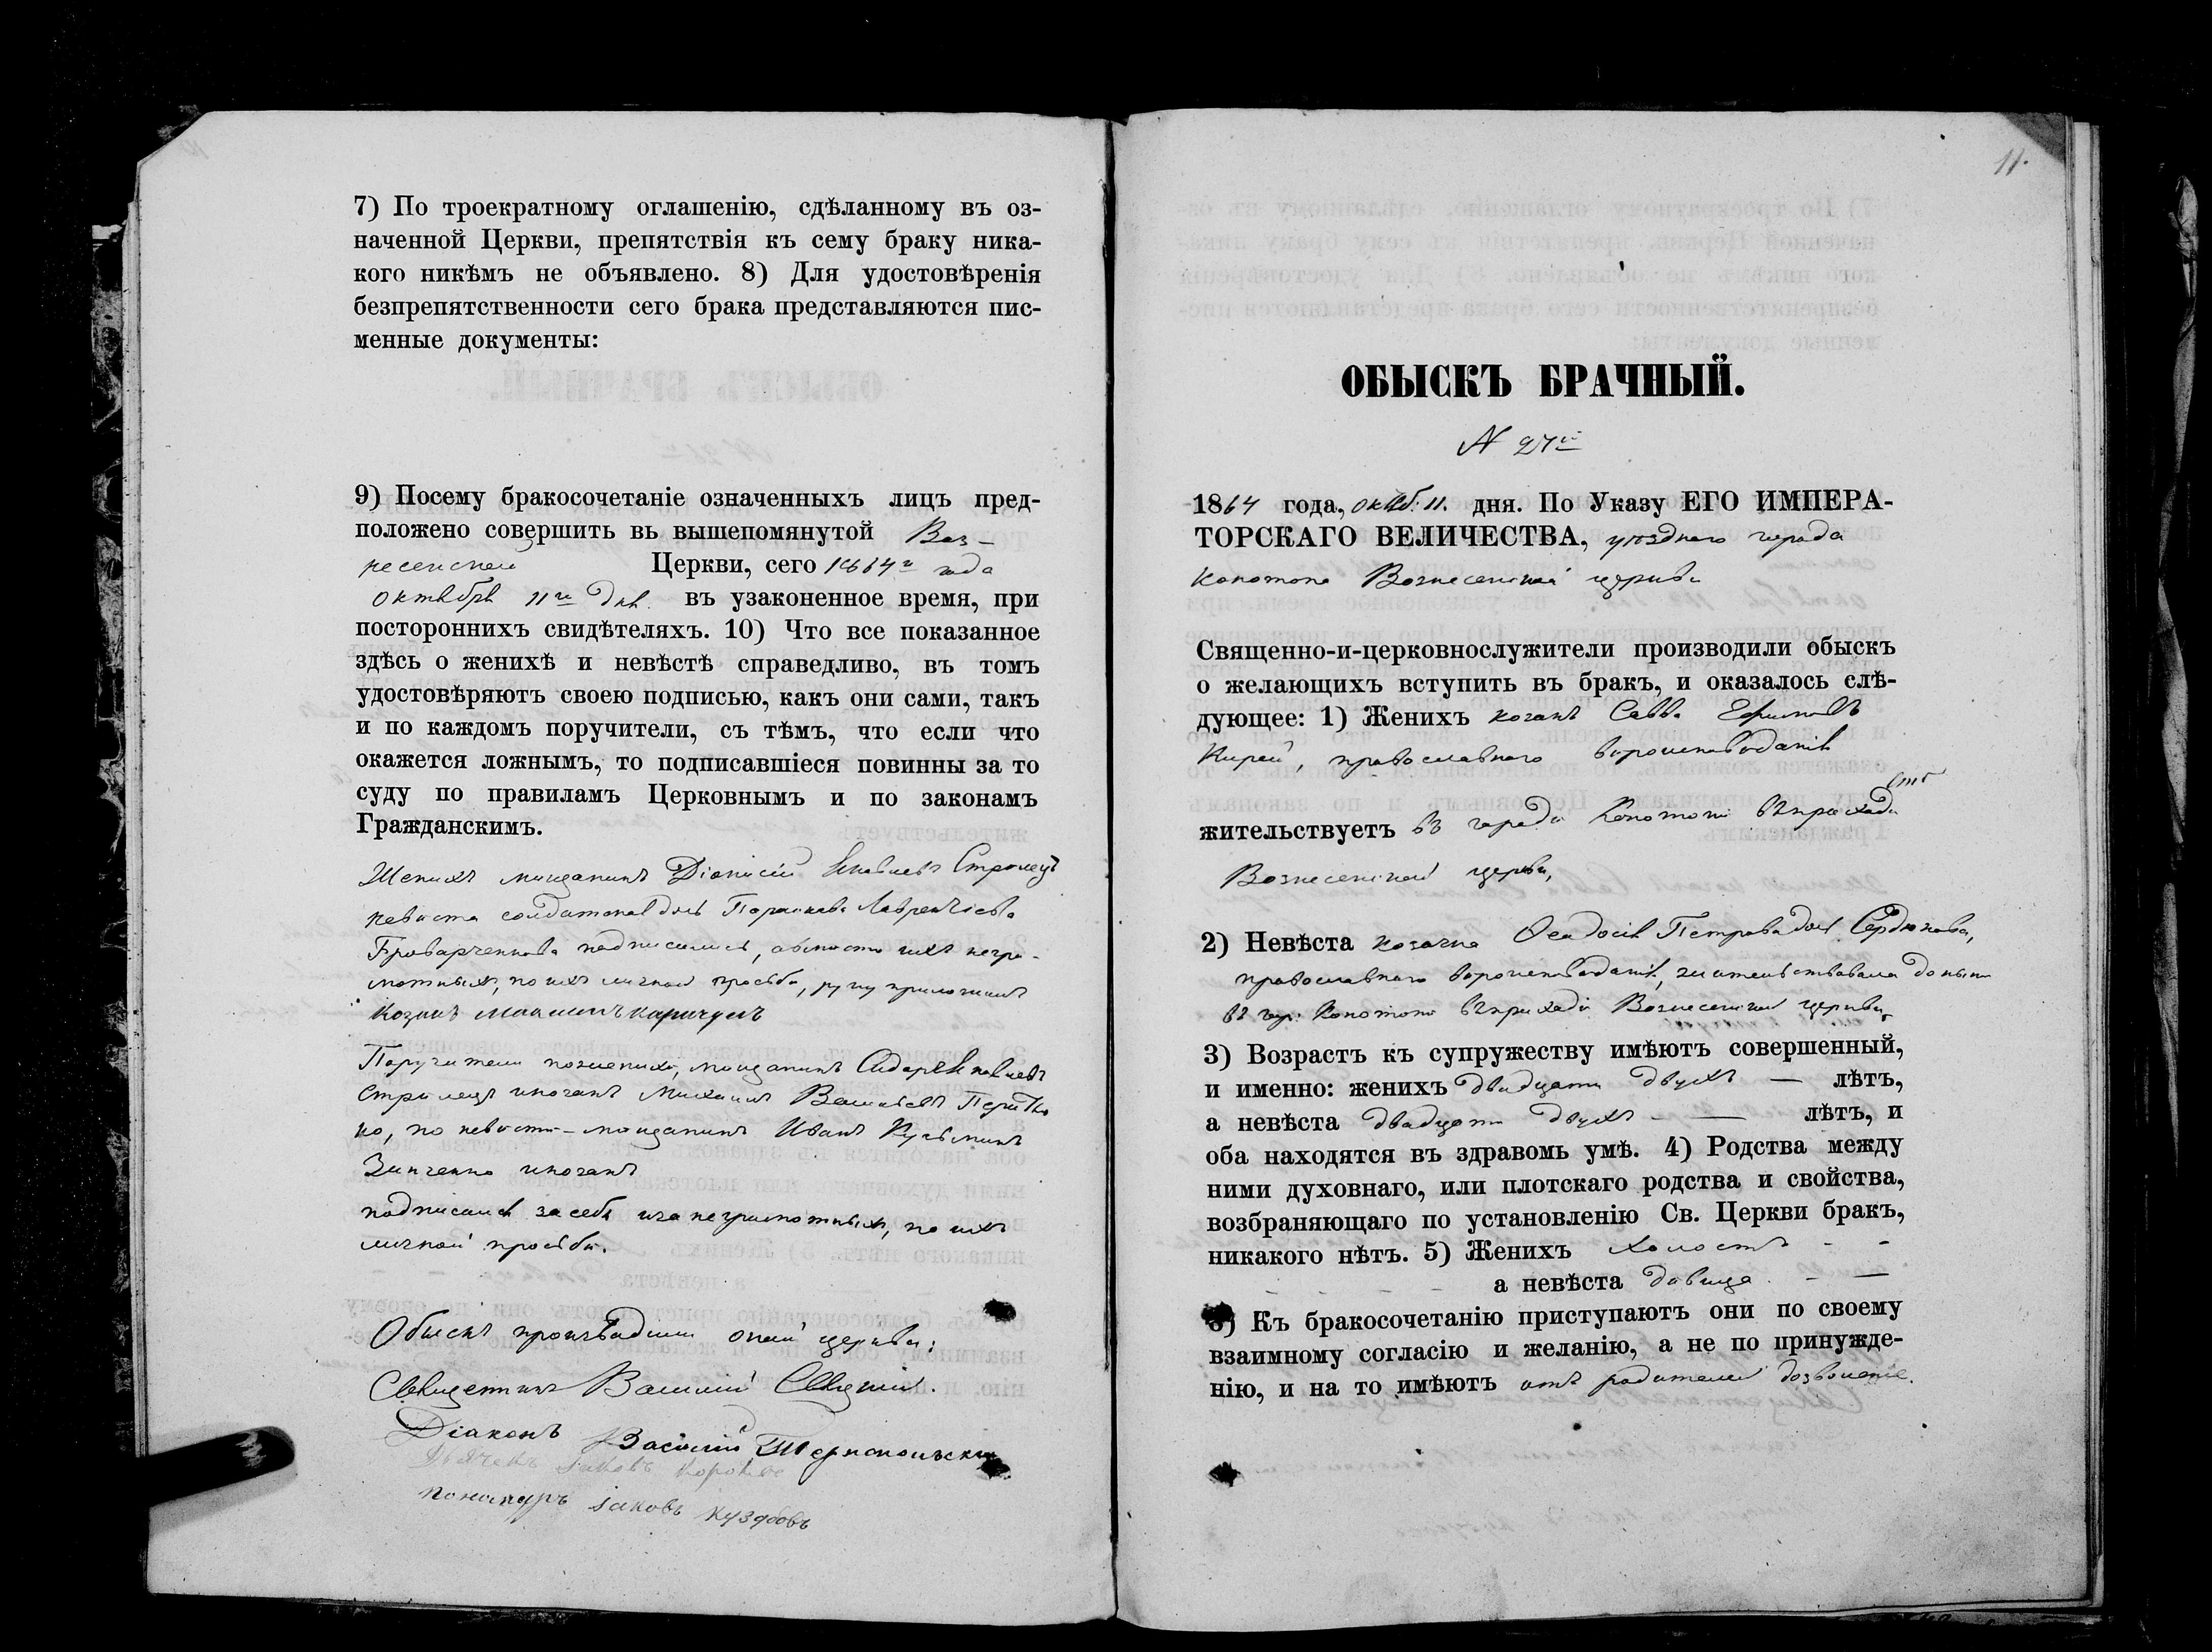 7) По троекратному оглашенію, сдѣланному въ оз-
наченной Церкви, препятствія къ сему браку ника-
кого никѣмъ не объявлено. 8) Для удостовѣренія
безпрепятственности сего брака представляются пис-
менные документы:
9) Посему бракосочетаніе означенныхъ лицъ пред-
положено совершить вь вышепомянутой Воз-
несенской Церкви, сего 1864го года
октября 11го дня. въ узаконенное время, при
постороннихъ свидѣтеляхъ. 10) Что все показанное
здѣсь о женихѣ и невѣстѣ справедливо, въ томъ
удостовѣряютъ своею подписью, какъ они сами, такъ
и по каждомъ поручители, съ тѣмъ, что если что
окажется ложнымъ, то подписавшіеся повинны за то
суду по правиламъ Церковнымъ и по законамъ
Гражданскимъ.
Женихъ мищанинъ Діонисій Стрелецъ
невѣста солдатская дочь Параскева Лаврентіева
подписались, а вмѣсто ихъ негра-
мотныхъ, по ихъ личной просьбѣ, руку приложилъ
Козакъ
Поручители по женихѣ, мищанинъ Сидоръ
Стрелецъ и козакъ Михаилъ
ко, по невѣстѣ - мищанинъ Иванъ Кузьминъ
Зинченко и козакъ
подписались за себя и за неграмотныхъ, по ихъ
личной просьбѣ.
Обыскъ производили оной церкви:
Священникъ Василій
Діаконъ Василій Тернопольскій
Дьячекъ Іаковъ
Пономаръ Іаковъ
11.
ОБЫСКЪ БРАЧНЫЙ.
N 27й
1864 года, октяб: 11. дня. По Указу ЕГО ИМПЕРА-
ТОРСКАГО ВЕЛИЧЕСТВА, уѣзднаго города
Конотопа Вознесенской церкви
Священно-и-церковнослужители производили обыскъ
о желающихъ вступить въ бракъ, и оказалось слѣ-
дующее: 1) Женихъ козакъ Савва Ефимовъ
Кирей, православнаго вѣроисповѣданія
жительствуетъ въ городѣ Конотопѣ въ приходѣ
Вознесенской церкви,
2) Невѣста козачка Ѳеодосія Петрова дочь Сердюкова,
православнаго вѣроисповѣданія, жительствовала до нынѣ
въ гор: Конотопѣ въ приходѣ Вознесенской церкви,
3) Возрастъ къ супружеству имѣютъ совершенный,
и именно: женихъ двадцати двухъ — лѣтъ,
а невѣста двадцати двухъ - — лѣтъ, и
оба находятся въ здравомь умѣ. 4) Родства между
ними духовнаго, или плотскаго родства и свойства,
возбраняющаго по установленію Св. Церкви бракъ,
никакого нѣтъ. 5) Женихъ холостъ - -
а невѣста дѣвица. - —
6) Къ бракосочетанію приступаютъ они по своему
взаимному согласію и желанію, а не по принужде-
нію, и на то имѣютъ отъ родителей дозволеніе.